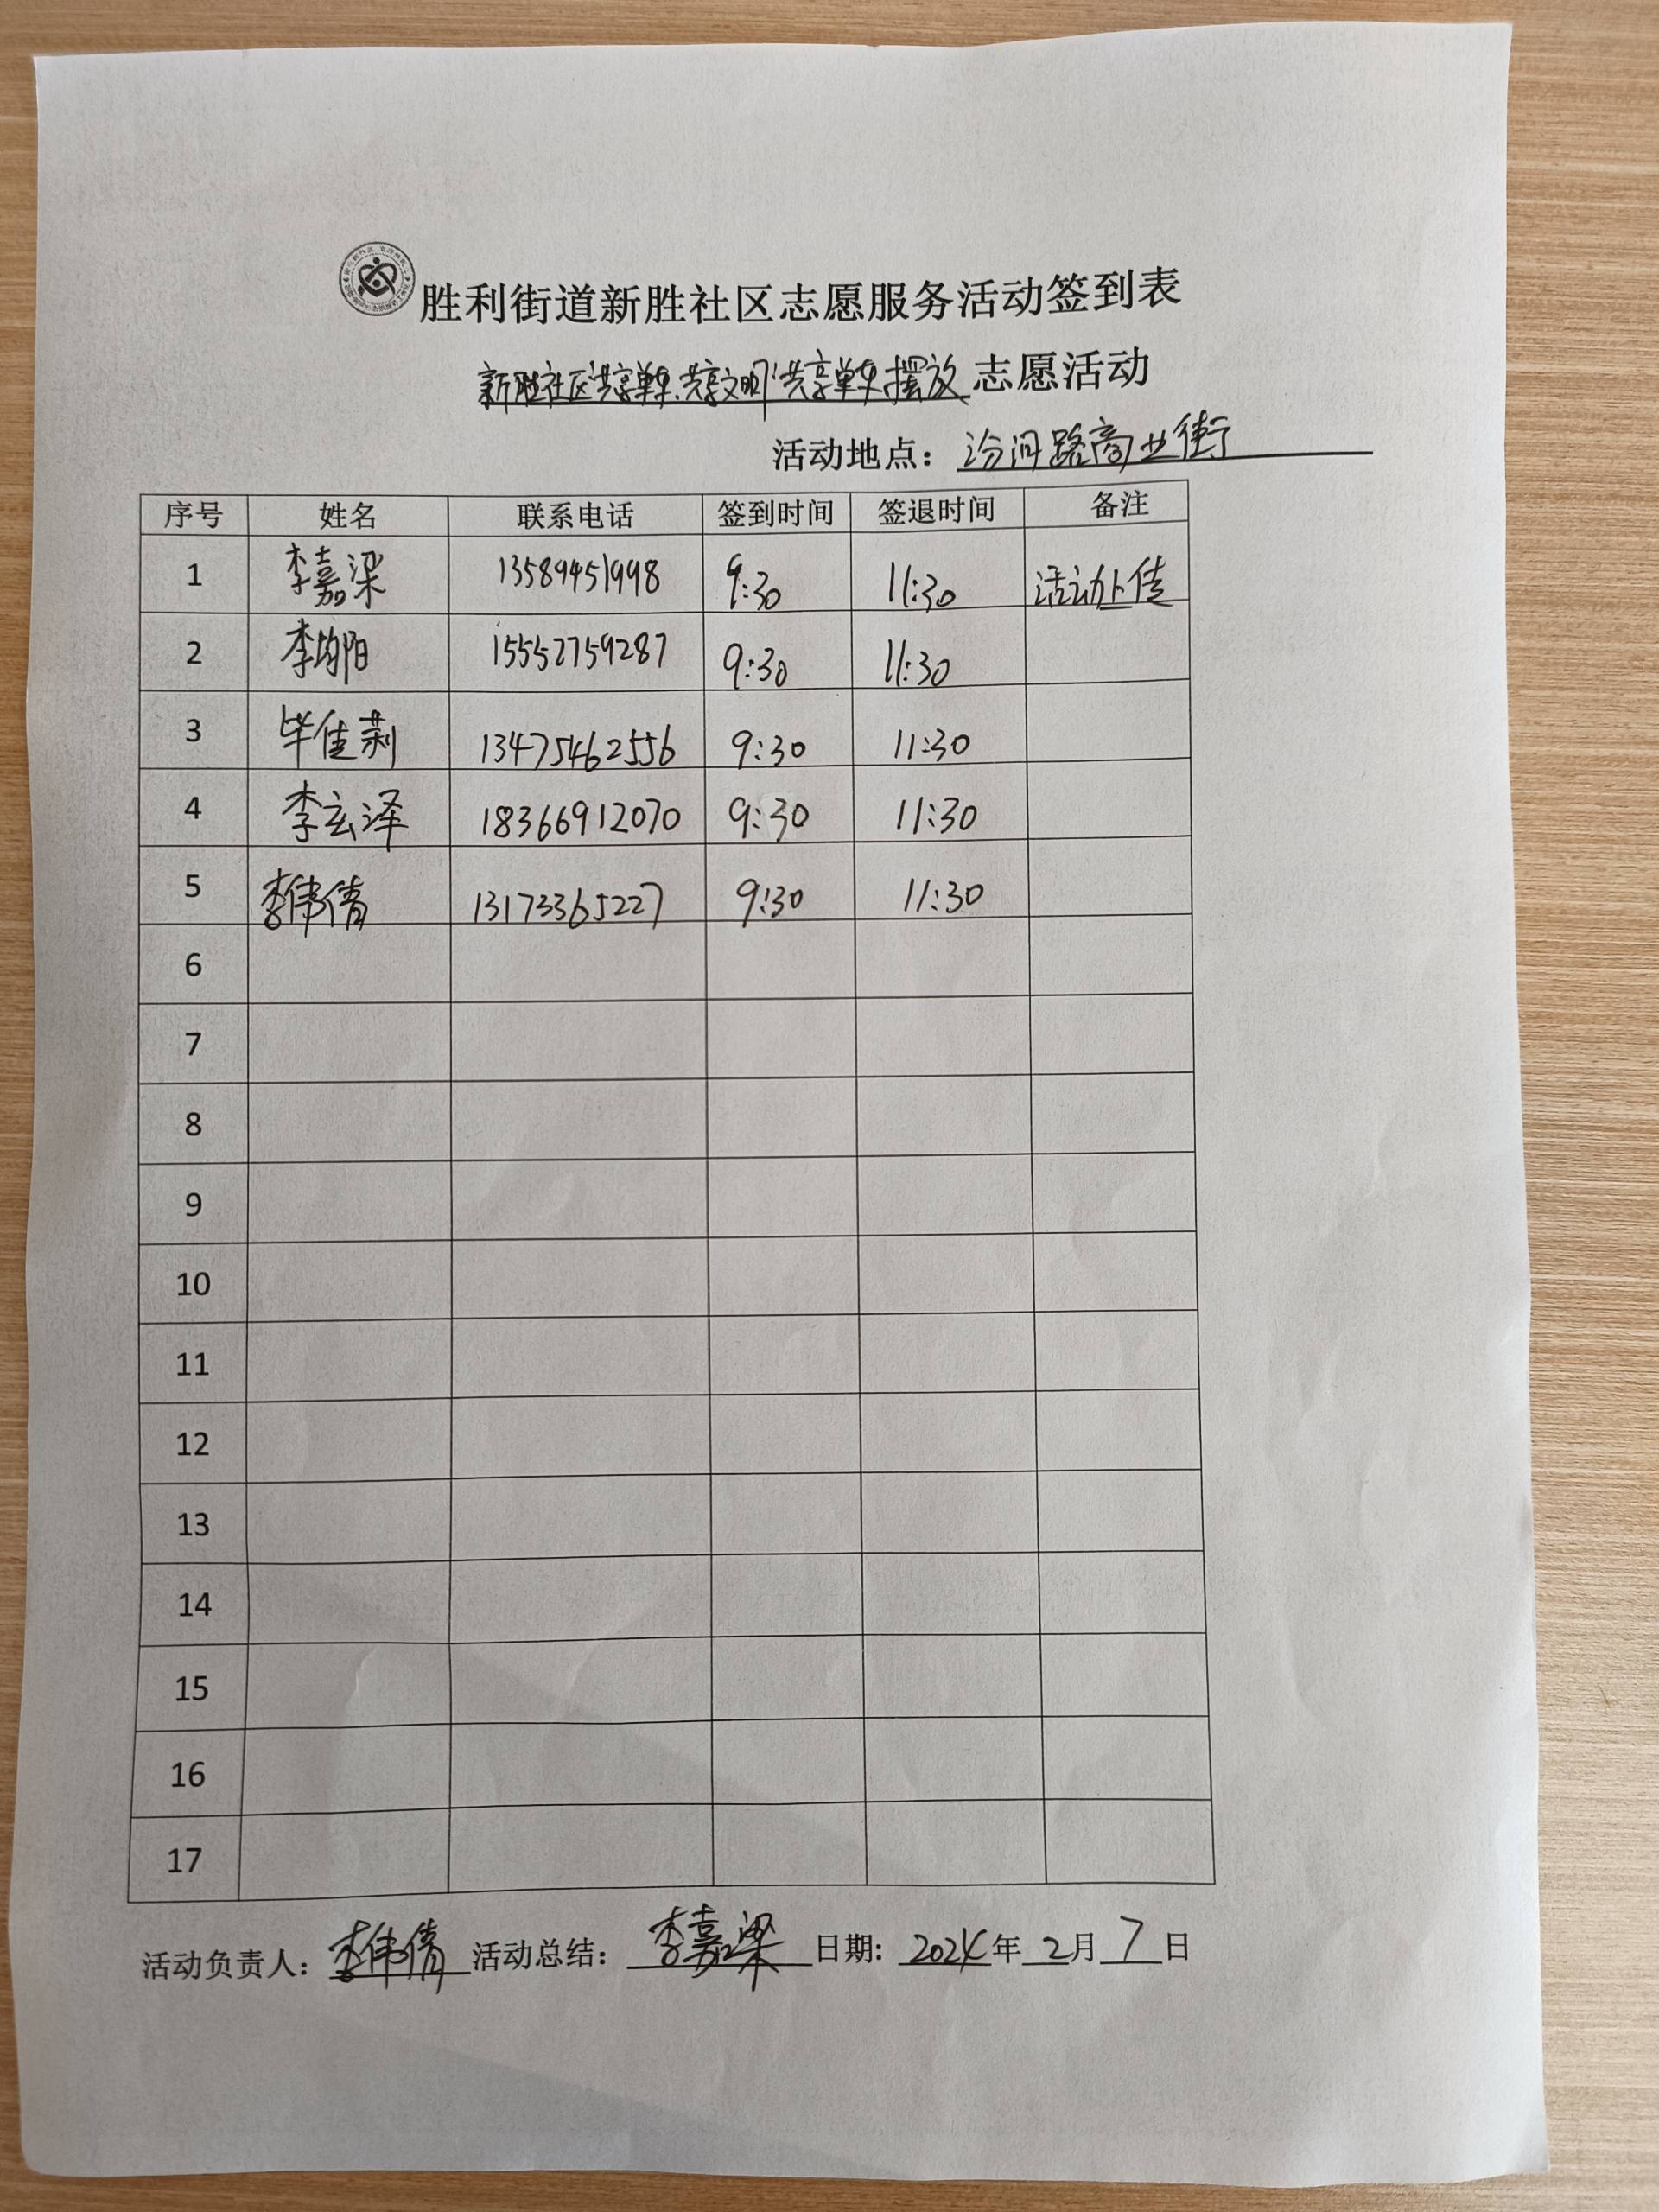 胜利街道新胜社区志愿服务活动签到表
新胜社区“共享单车、共享文明”共享单车摆放志愿活动
活动地点：汾河路商业街
序号 姓名 联系电话 签到时间 签退时间 备注
1 李嘉梁 13589451998 9:30 11:30 活动上传
2 李均阳 15552759287 9:30 11:30
3 毕佳莉 13475462556 9:30 11:30
4 李玄泽 18366912070 9:30 11:30
5 李伟倩 13173365227 9:30 11:30
6
7
8
9
10
11
12
13
14
15
16
17
活动负责人：李伟倩 活动总结：李嘉梁 日期：2024年2月7日